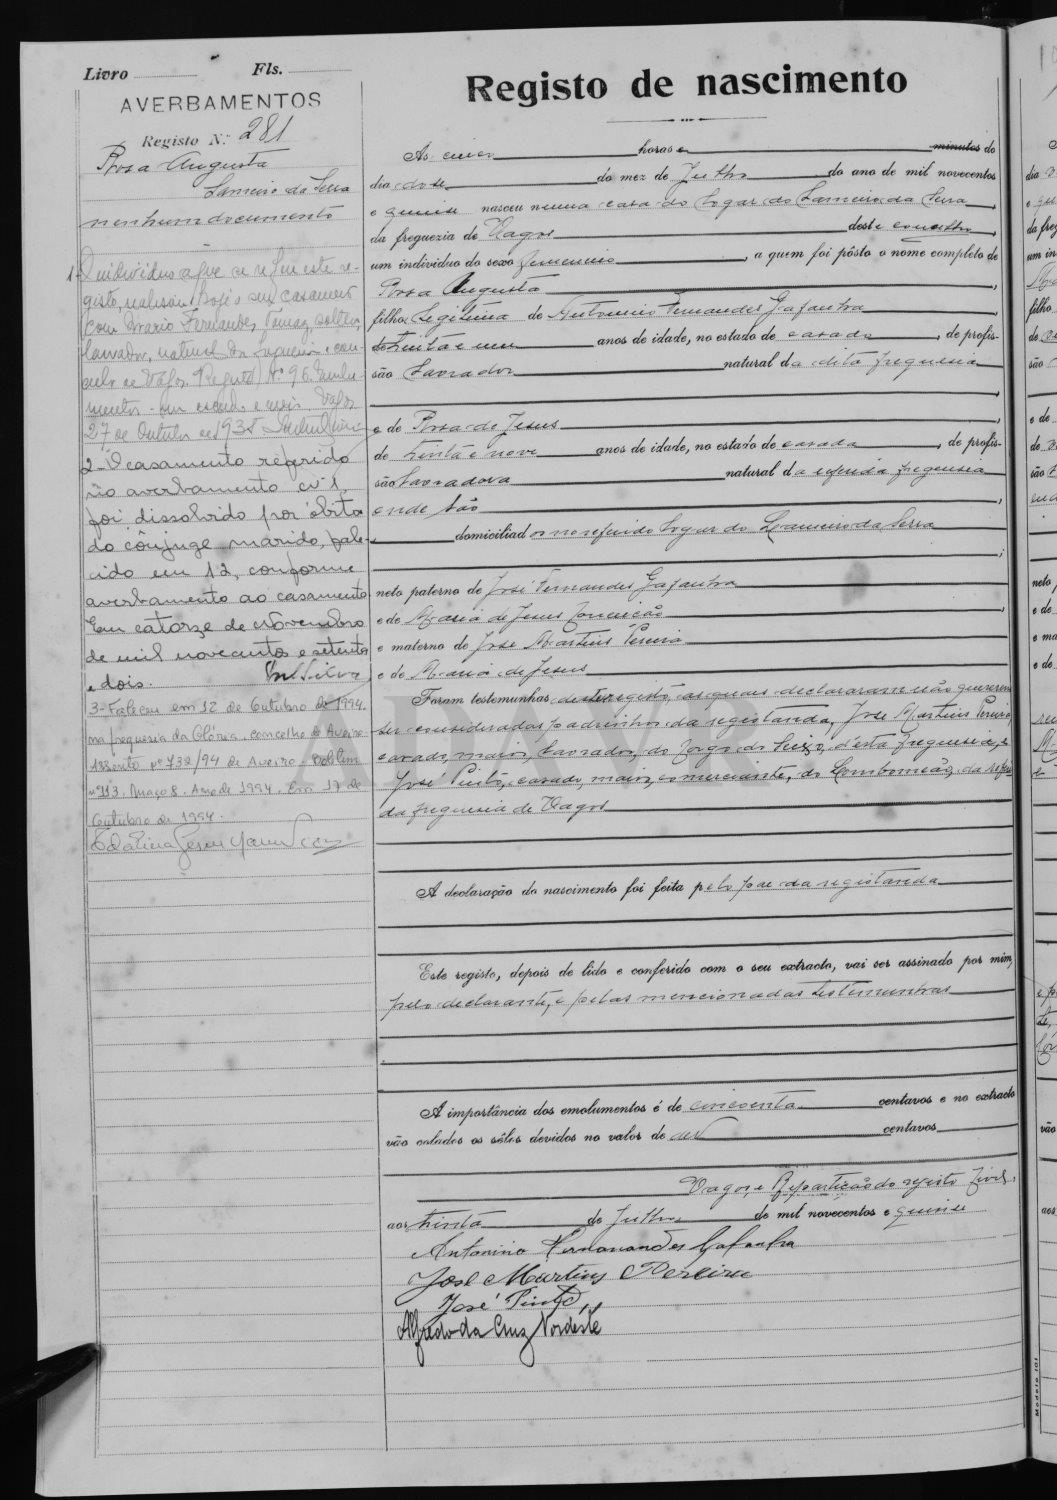 Livro Fls.
AVERBAMENTOS
Registo N.º 281
Rosa Augusta
Lameiro da Serra
nenhum documento
1- O individuo a que se refere este re-
gisto, realisou hoje o seu casamento
com Mario Fernandes Tomaz, solteiro,
lavrador, natural da
celho de Vagos. Registo nº 96. Emolu-
mentos - um escudo e meio. Vagos
27 de Outubro de 1935
2- O casamento referido
no averbamento nº 1,
foi dissolvido por óbito
do cônjuge marido, fale-
cido em 12, conforme
averbamento ao casamento
Em catorze de Novembro
de mil novecentos e setenta
e dois. Silva
3- Faleceu em 12 de Outubro de 1994.
na freguesia da Glória, concelho de Aveiro.
Assento nº 732/94 de Aveiro. Boletim
nº 313. Maço 8. Ano de 1994. Em 17 de
Outubro de 1994.
Registo de nascimento
Ás cinco horas e minutos do
dia doze do mez de Julho do ano de mil novecentos
e quinze nasceu numa casa do logar do Lameiro da Serra
da freguezia de Vagos deste concelho,
um individuo do sexo femenino, a quem foi pôsto o nome completo de
Rosa Augusta
filha Legitima de Antonino Fernandes Gafanha
de trinta e um anos de idade, no estado de casado, de profis-
são Lavrador natural da dita freguesia
e de Rosa de Jesus
de trinta e nove anos de idade, no estado de casada, de profis-
são Lavradora natural da referida freguesia
onde são
domiciliados no referido logar do Lameiro da Serra
neto paterno de José Fernandes Gafanha
e de Maria de Jesus Conceicão
e materno de José Martins Pereira
e de Maria de Jesus
Foram testemunhas deste registo, as quaes declararam não quererem
ser consideradas padrinhos da registanda, José Martins Pereira,
casado, maior, Lavrador, do logar do Seixo, d'esta freguesia, e
José Pinto, casado, maior, comerciante, do Lombomeão, da referi
da freguesia de Vagos
A declaração do nascimento foi feita pelo pae da registanda
Este registo, depois de lido e conferido com o seu extracto, vai ser assinado por mim,
pelo declarante, e pelas mencionadas testemunhas
A importância dos emolumentos é de cincoenta centavos e no extracto
vão colados os sêlos devidos no valor de dez centavos
Vagos, e Reparticão do registo Civil,
aos trinta de Julho de mil novecentos e quinze
Antonino Fernandes Gafanha
José Martins Pereira
José Pinto
Alfredo da Cruz Nordeste
Modelo 101